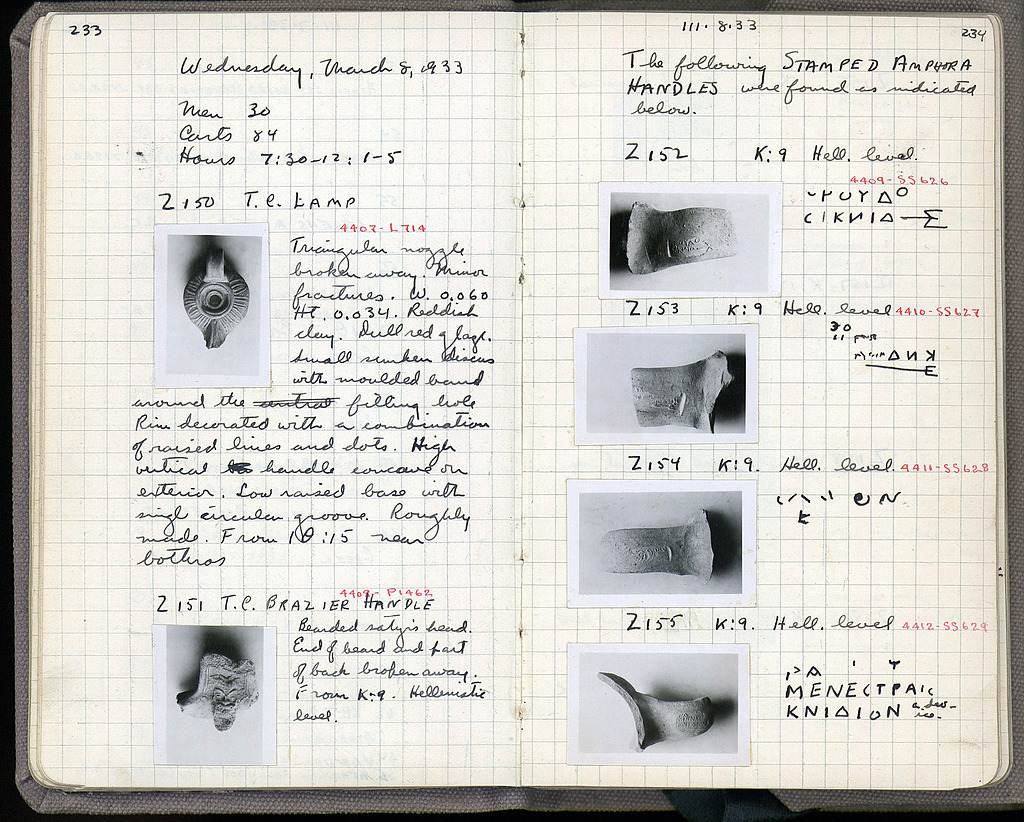 233
Wednesday, March 8, 1933
Men 30
Carts 84
Hours 7:30-12: 1-5
Z 150 T.C. LAMP
4407-L714
Triangular nozzle
broken away. Minor
fractures. W. 0.060
Ht. 0.034. Reddish
clay. Dull red glaze.
Small sunken discus
with moulded band
around the central filling hole
Rim decorated with a combination
of raised lines and dots. High
vertical handle concave on
exterior. Low raised base with
singl circular groove. Roughly
made. From 10:15 near
bothros
Z 151 T.C. BRAZIER HANDLE
4408-P1462
Bearded satyr's head.
End of beard and part
of back broken away.
From K:9. Hellenistic
level.
111.8.33
234
The following STAMPED AMPHORA
HANDLES were found as indicated
below.
Z 152 K:9 Hell. level.
4409-SS626
Z 153 K:9 Hell. level 4410-SS627
Z 154 K:9. Hell. level. 4411-SS628
Z 155 K:9. Hell. level 4412-SS629
ΜΕΝΕCΤΡΑΙC
ΚΝΙΔΙΟΝ